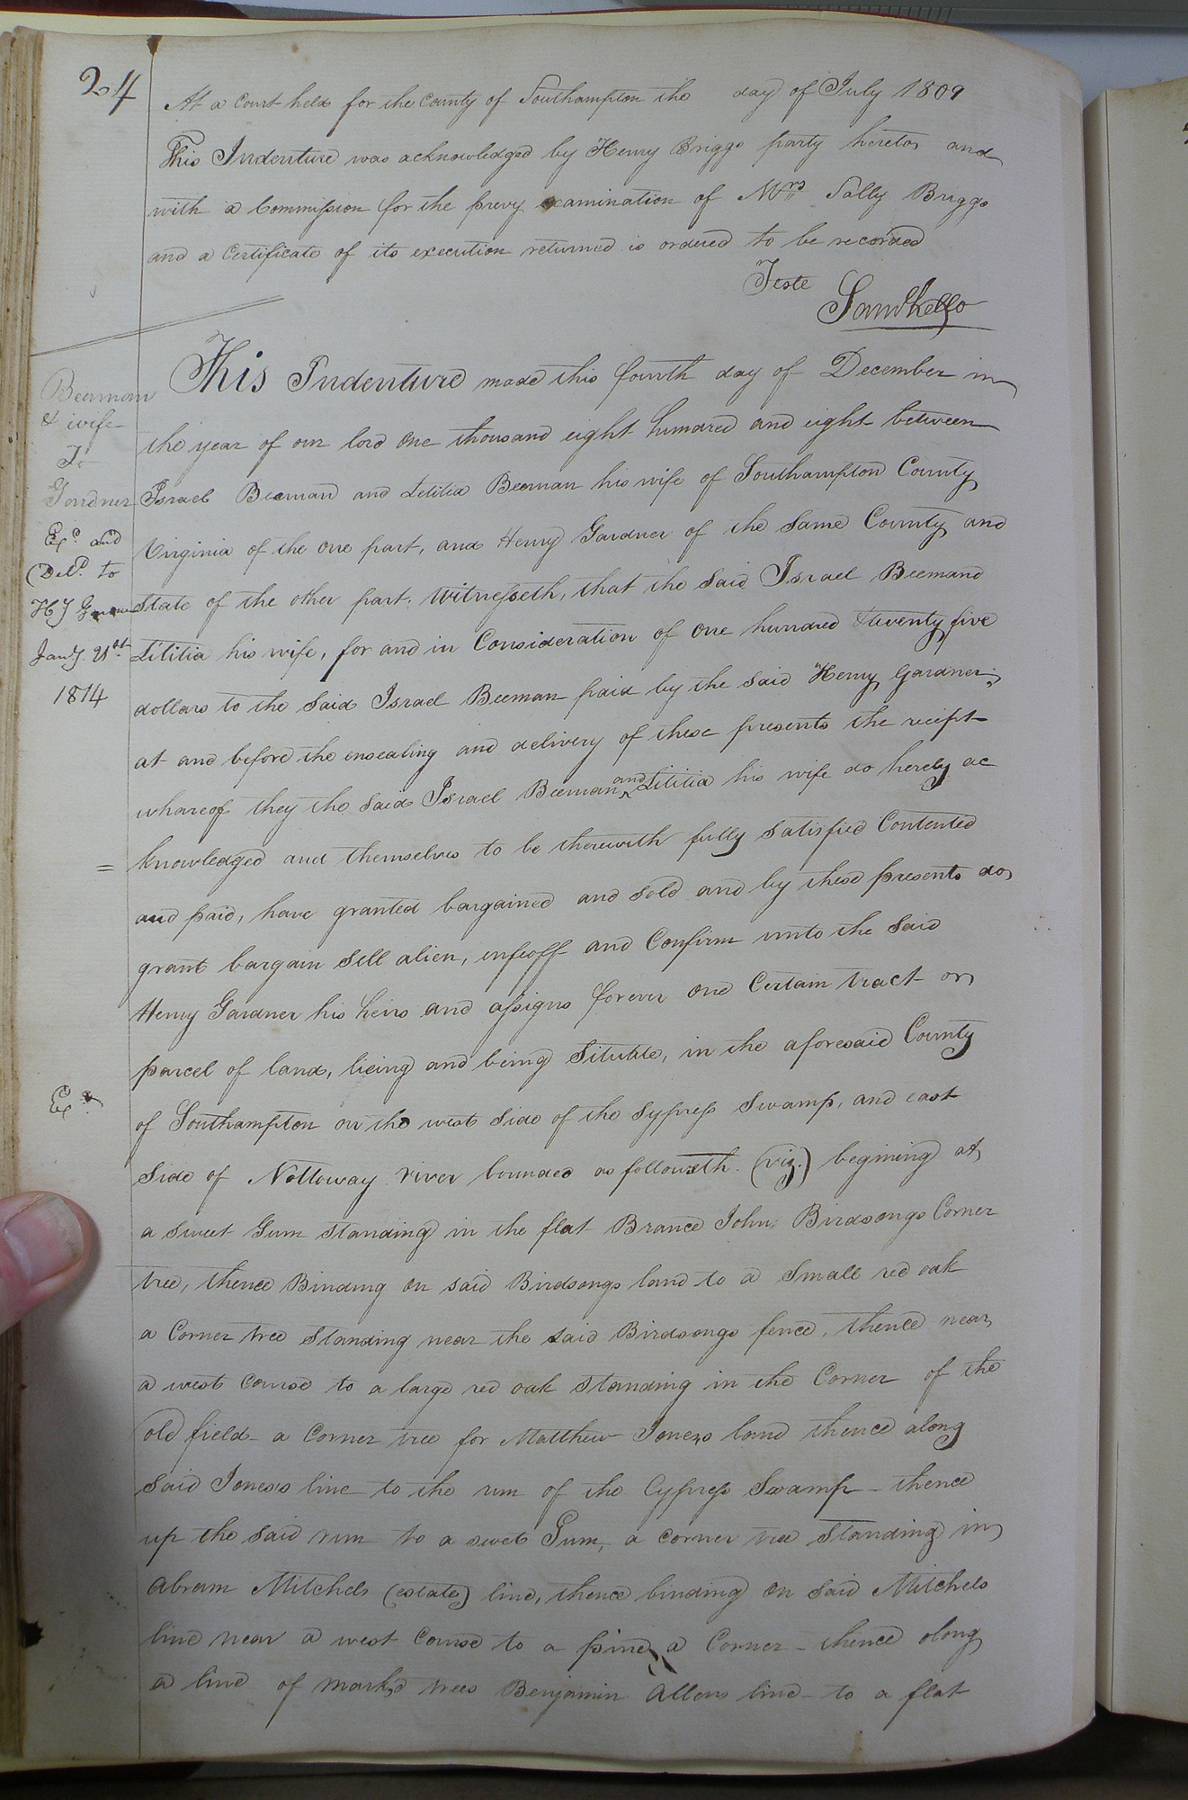 24
At a Court held for the County of Southampton the day of July 1809
This Indenture was acknowledged by Henry Briggs party hereto and
with a Commission for the prevy examination of Mrs Sally Briggs
and a Certificate of its execution returned is ordered to be recorded
Teste
Saml Kello
Beeman
& wife
To
Gardner
Exd. and
Deld. to
HJ
Jany. 21st
1814
This Indenture made this fourth day of December in
the year of our lord One thousand eight hundred and eight between
Israel Beeman and Letitia Beeman his wife of Southampton County
Virginia of the One part, and Henry Gardner of the Same County and
State of the other part. Witnesseth, that the Said Israel Beemand
Lititia his wife, for and in Consideration of One hundred & twenty five
dollars to the Said Israel Beeman paid by the Said Henry Gardner,
at and before the ensealing and delivery of these presents the recept
whareof they the Said Israel Beeman and Lititia his wife do hereby ac
= knowledged and themselves to be therewith fully Satisfied Contented
and paid, have granted bargained and Sold and by these presents do
grant bargain Sell alien, enfeoff and Confirm unto the Said
Henry Gardner his heirs and assigns forever One Certain tract or
parcel of land, lieing and being Situtile, in the aforesaid County
Exd.
of Southampton on the west Side of the Sypress Swamp, and east
Side of Nottoway river bounded as followeth. (viz.) begining at
a Sweet Gum Standing in the flat Brance John, Birdsongs Corner
tree, thence Binding on said Birdsongs land to a Small red oak
a Corner tree Standing near the said Birdsongs fence, thence near
a west Course to a large red oak Standing in the Corner of the
old field a Corner tree for Matthew Joness land thence along
Said Joness line to the run of the Cypress Swamp - thence
up the Said run to a swet Gum, a corner tree Standing in
Abram Mitchels (estate) line, thence binding on Said Mitchels
line near a west Course to a pine, a Corner - thence along
a line of mark,d trees Benjamin Allens line - to a flat